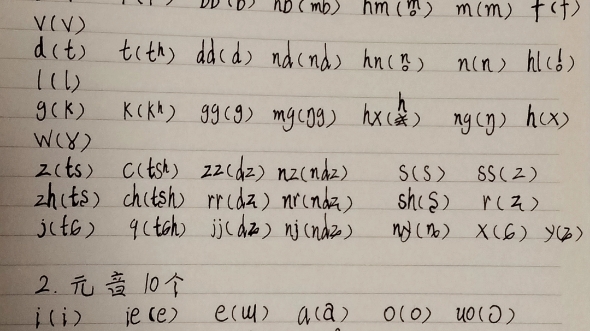 bb(b) nb(mb) hm(m̥) m(m) f(f)
v(v)
d(t) t(tʰ) dd(d) nd(nd) hn(n̥) n(n) hl(l̥)
l(l)
g(k) k(kʰ) gg(g) mg(ŋg) hx(h) ng(ŋ) h(x)
w(ɣ)
z(ts) c(tsh) zz(dz) nz(ndz) s(s) ss(z)
zh(tʂ) ch(tʂh) rr(dʐ) nr(ndʐ) sh(ʂ) r(ʐ)
j(tɕ) q(tɕh) jj(dʑ) nj(ndʑ) ny(ȵ) x(ɕ) y(ʑ)
2. 元音10个
i(i) ie(e) e(ɯ) a(a) o(o) uo(ɔ)